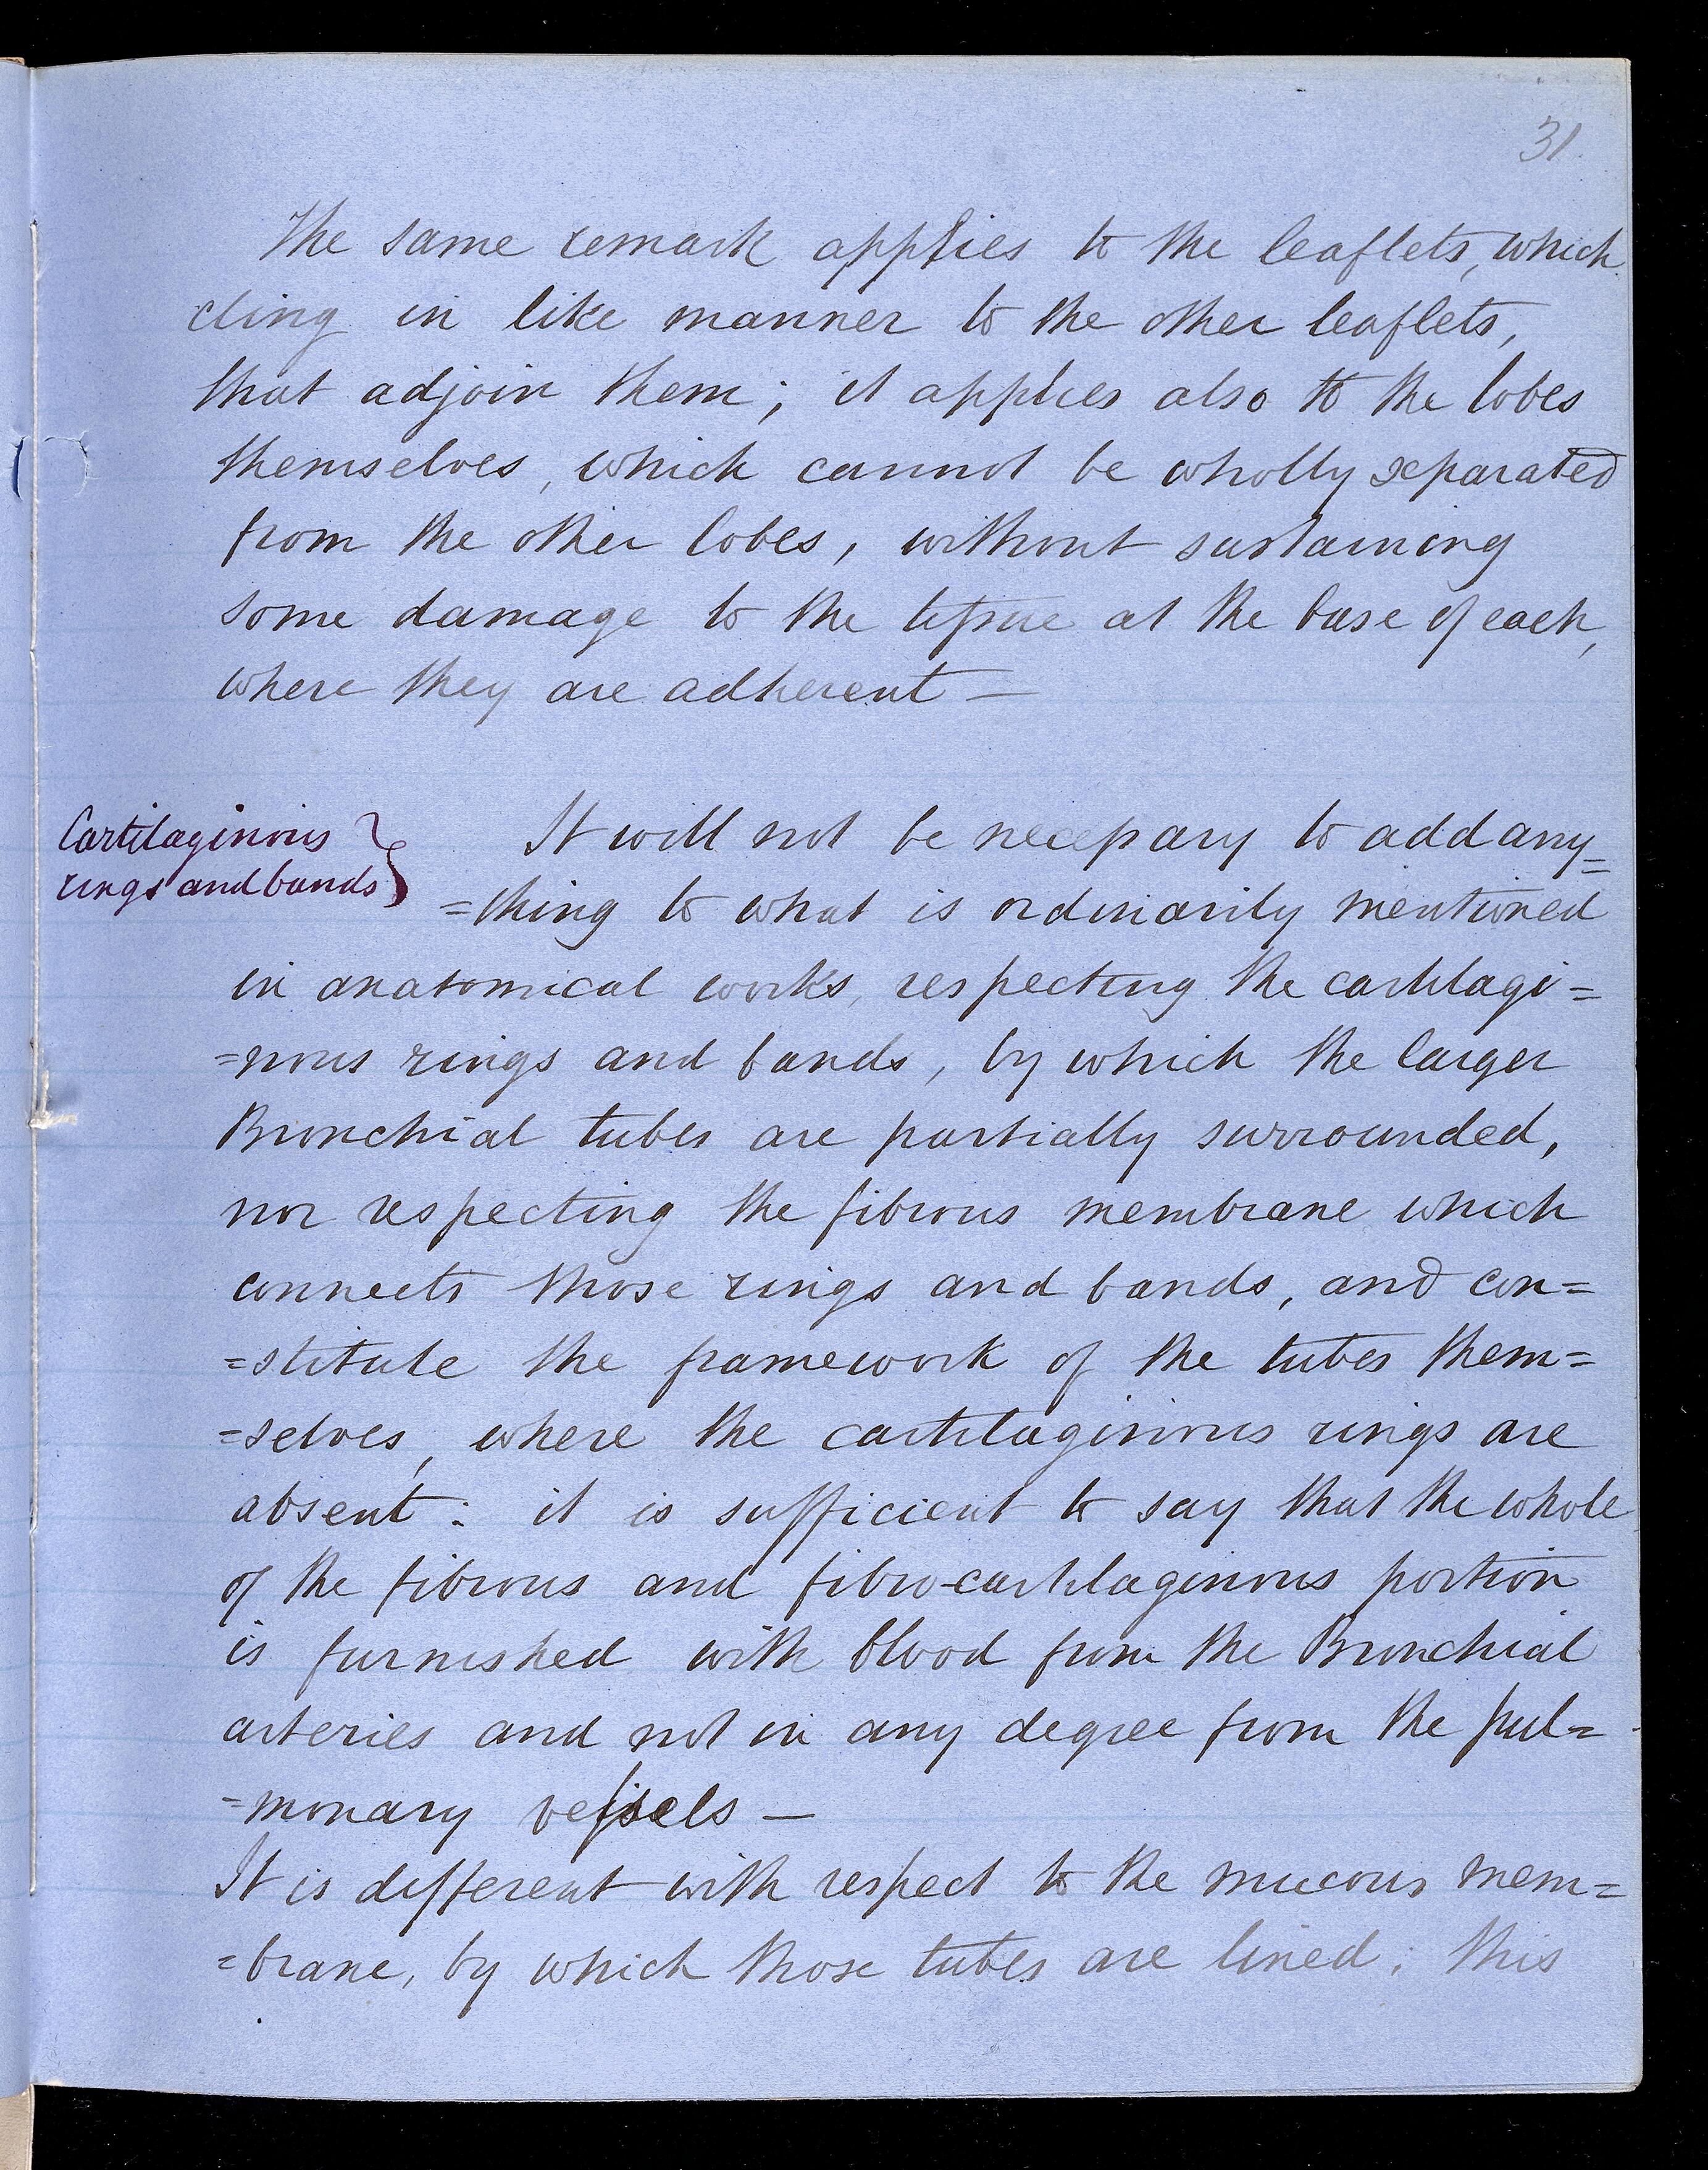 31
The same remark applies to the leaflets, which
cling in like manner to the other leaflets,
that adjoin them; it applies also to the lobes
themselves, which cannot be wholly separated
from the other lobes, without sustaining
some damage to the tissue at the base of each,
where they are adherent —
Cartilaginous
rings and bands
It will not be necessary to add any=
=thing to what is ordinarily mentioned
in anatomical works, respecting the cartilagi=
=nous rings and bands, by which the larger
Bronchial tubes are partially surrounded,
nor respecting the fibrous membrane which
connects those rings and bands, and con=
=stitute the framework of the tubes them=
=selves, where the cartilaginous rings are
absent: it is sufficient to say that the whole
of the fibrous and fibro-cartilaginous portion
is furnished with blood from the Bronchial
arteries and not in any degree from the pul=
=monary vessels —
It is different with respect to the mucous mem=
=brane, by which those tubes are lined; this